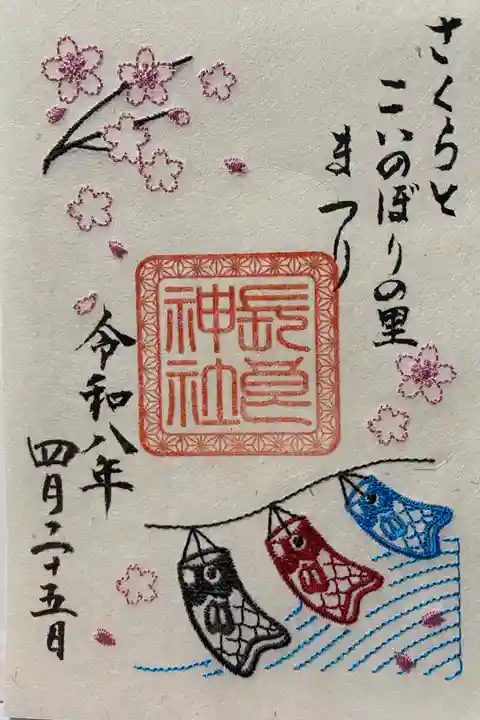 さくらと
こいのぼりの里
まつり
長良
神社
令和八年
四月二十五日